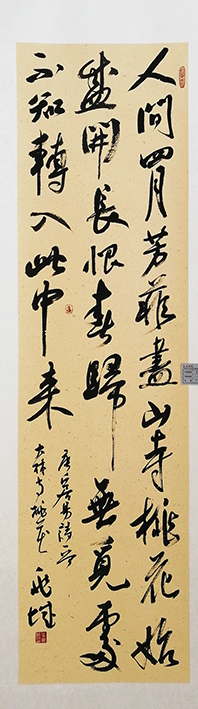 人間四月芳菲盡山寺桃花始
盛開長恨春歸無覓處
不知轉入此中来
唐白居易詩
大林寺桃花